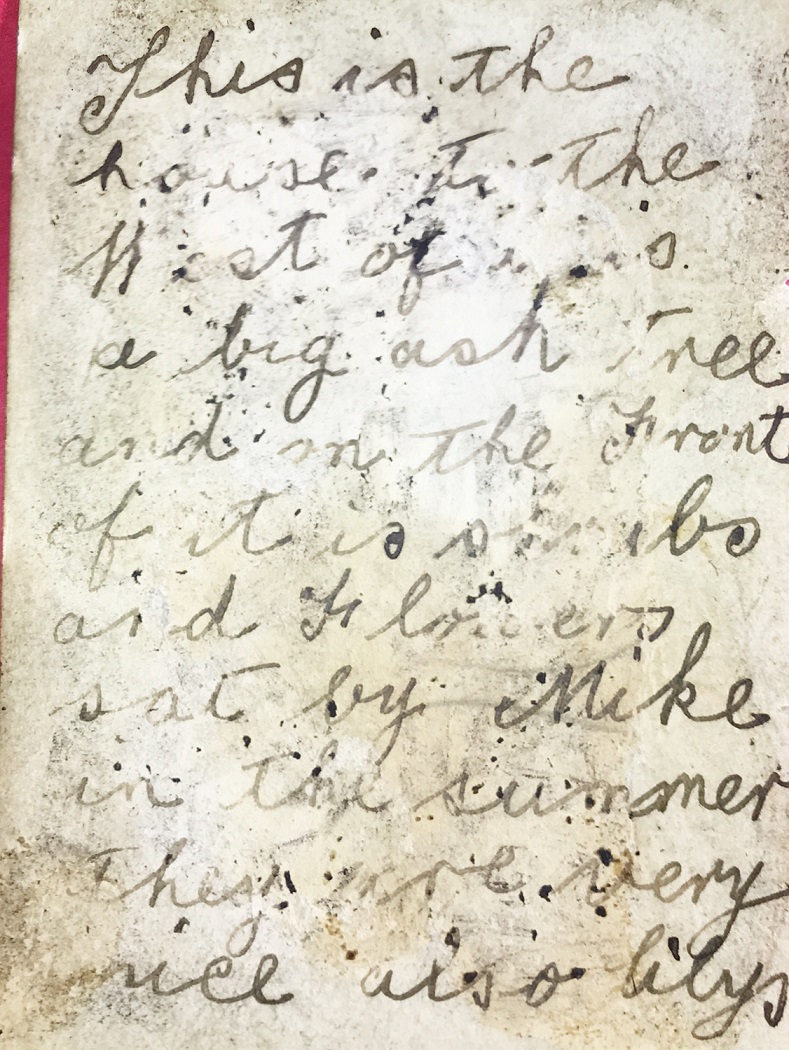 This is the
house to the
West of is
a big ash tree
and in the Front
of it is shrubs
and Flowers
sat by Mike
in the summer
they are very
nice also lilys